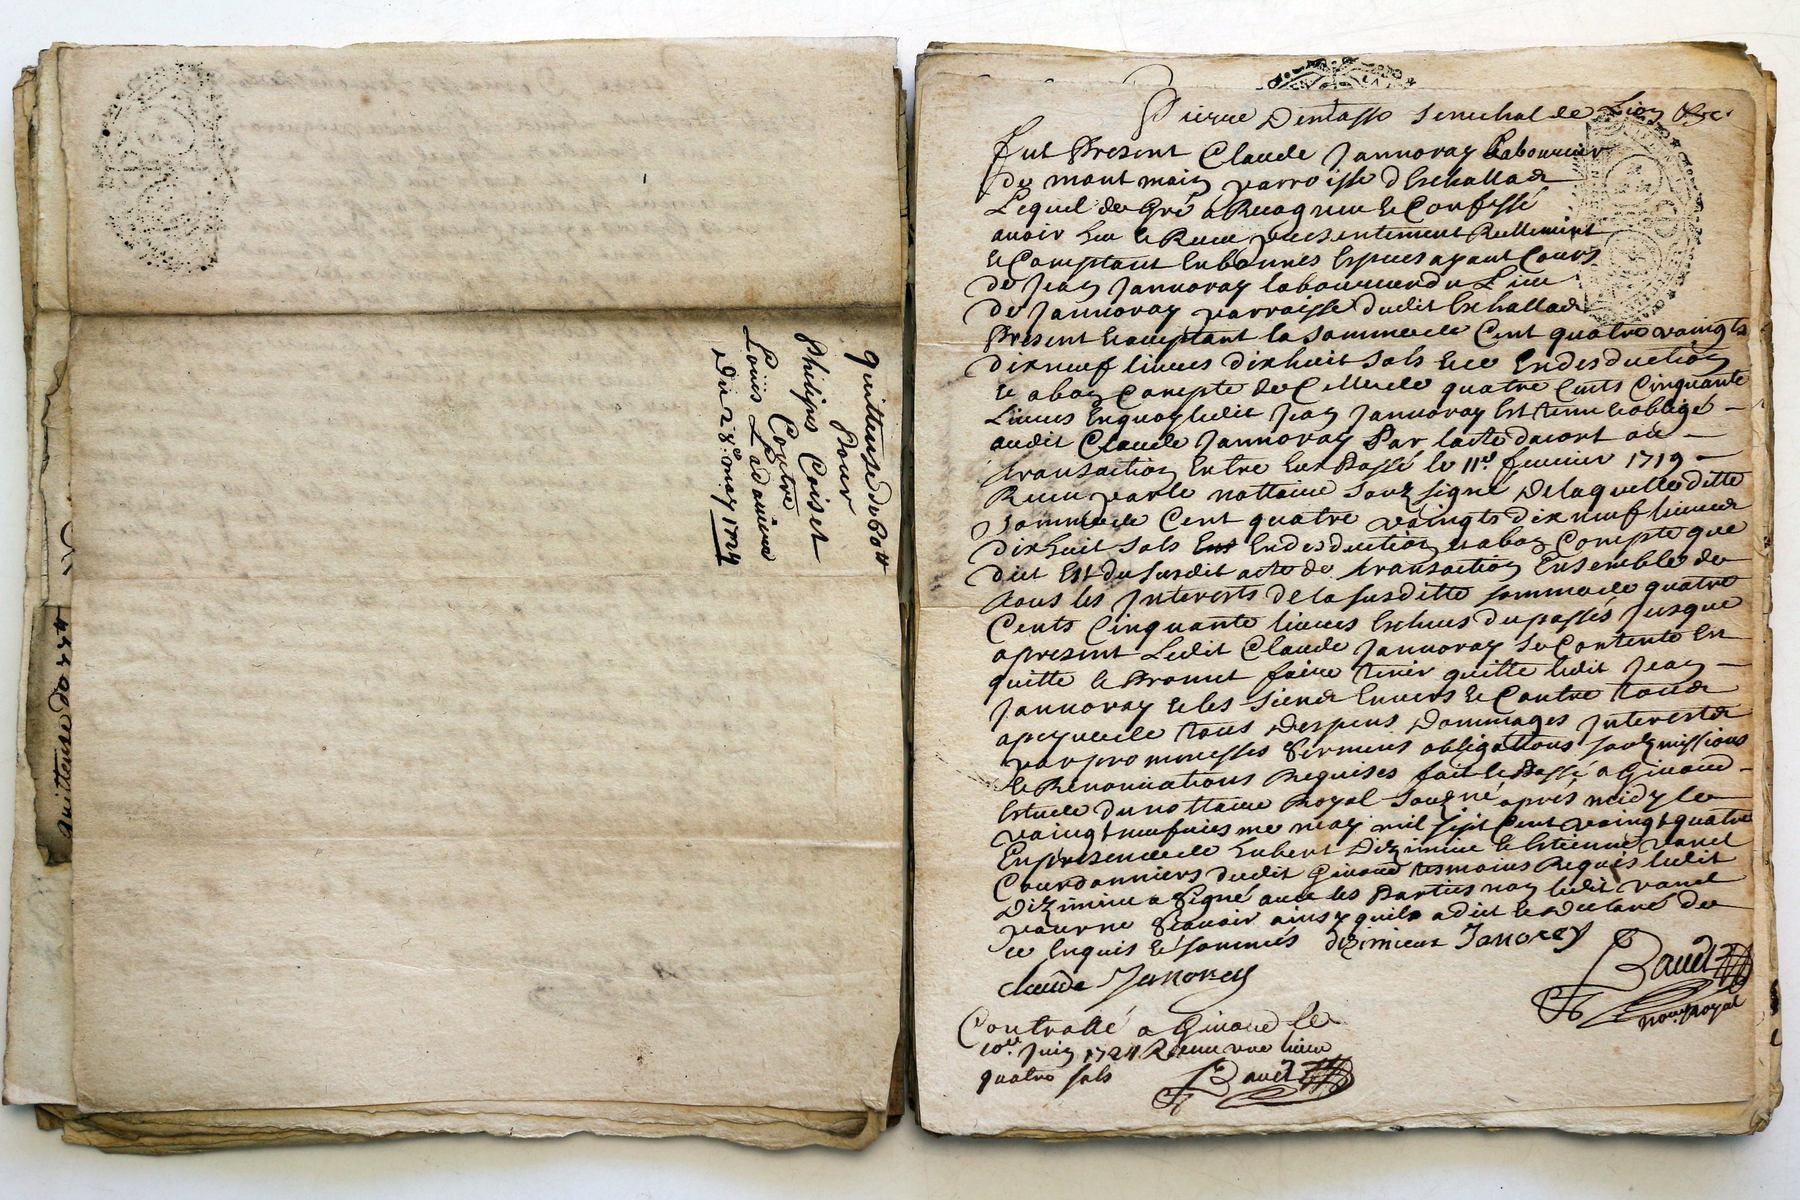 quittense de
Pour
Philipes Coiset
Contre
Louis Ladavieue
Du 28e may 1724
quittense de
Pierre Dentasso Senechal de Lion &c.
fut Present Claude Jannoray Laboureur
de mont main parroisse d'Eschallad
Lequel de gré a Recognu & Confessé
avoir heu & Receu presentement Reellement
& Comptant En bonnes Especes ayant Cours
de Jean Jannoray laboureur du Lieu
de Jannoray parroisse dudit Eschallad
Present & acceptant la Somme de Cent quatre vaingts
dix neuf livres dix huit Sols & ce En desduction
& a bon Compte de Celle de quatre Cents Cinquante
Livres En quoy ledit Jean Jannoray Est tenu & obligé
audit Claude Jannoray Par lacte dacort ou
transaction Entre Eux Passé le 11e fevrier 1719
Receu par le nottaire Souzsigné De laquelle ditte
Somme de Cent quatre vaingts dix neuf livres
dix huit Sols En desduction & a bon Compte que
dict Est du Susdit acte de transaction Ensemble de
tous les Interests de la susditte somme de quatre
Cents Cinquante livres Escheus du passés Jusque
apresent Ledit Claude Jannoray Se Contente En
quitte & Promet faire tenir quitte ledit Jean
Jannoray & les Siens Envers & Contre tous
a peyne de tous Despens Dommages Interests
par prommesses Serments obligations souzmissions
& Renonciations Requises fait & Passé a Givord
Estude du nottaire Royal Souzné après midy le
vaingt neufuiesme may mil sept Cent vaingt quatre
En presence de hubert Dizimieu & Estienne vanel
Courdonniers dudit Givord tesmoins Requis ledit
Dizimieu a Signé avec les Parties non ledit vanel
pour ne Scavoir ainsy quil a dict & Declaré de
ce Enquis & Sommés dizimieux Janorey
claude Janorey
Baudt
no.re Royal
Contrallé a Givord le
10e Juin 1724 Receu une livre
quatre sols
Baudt